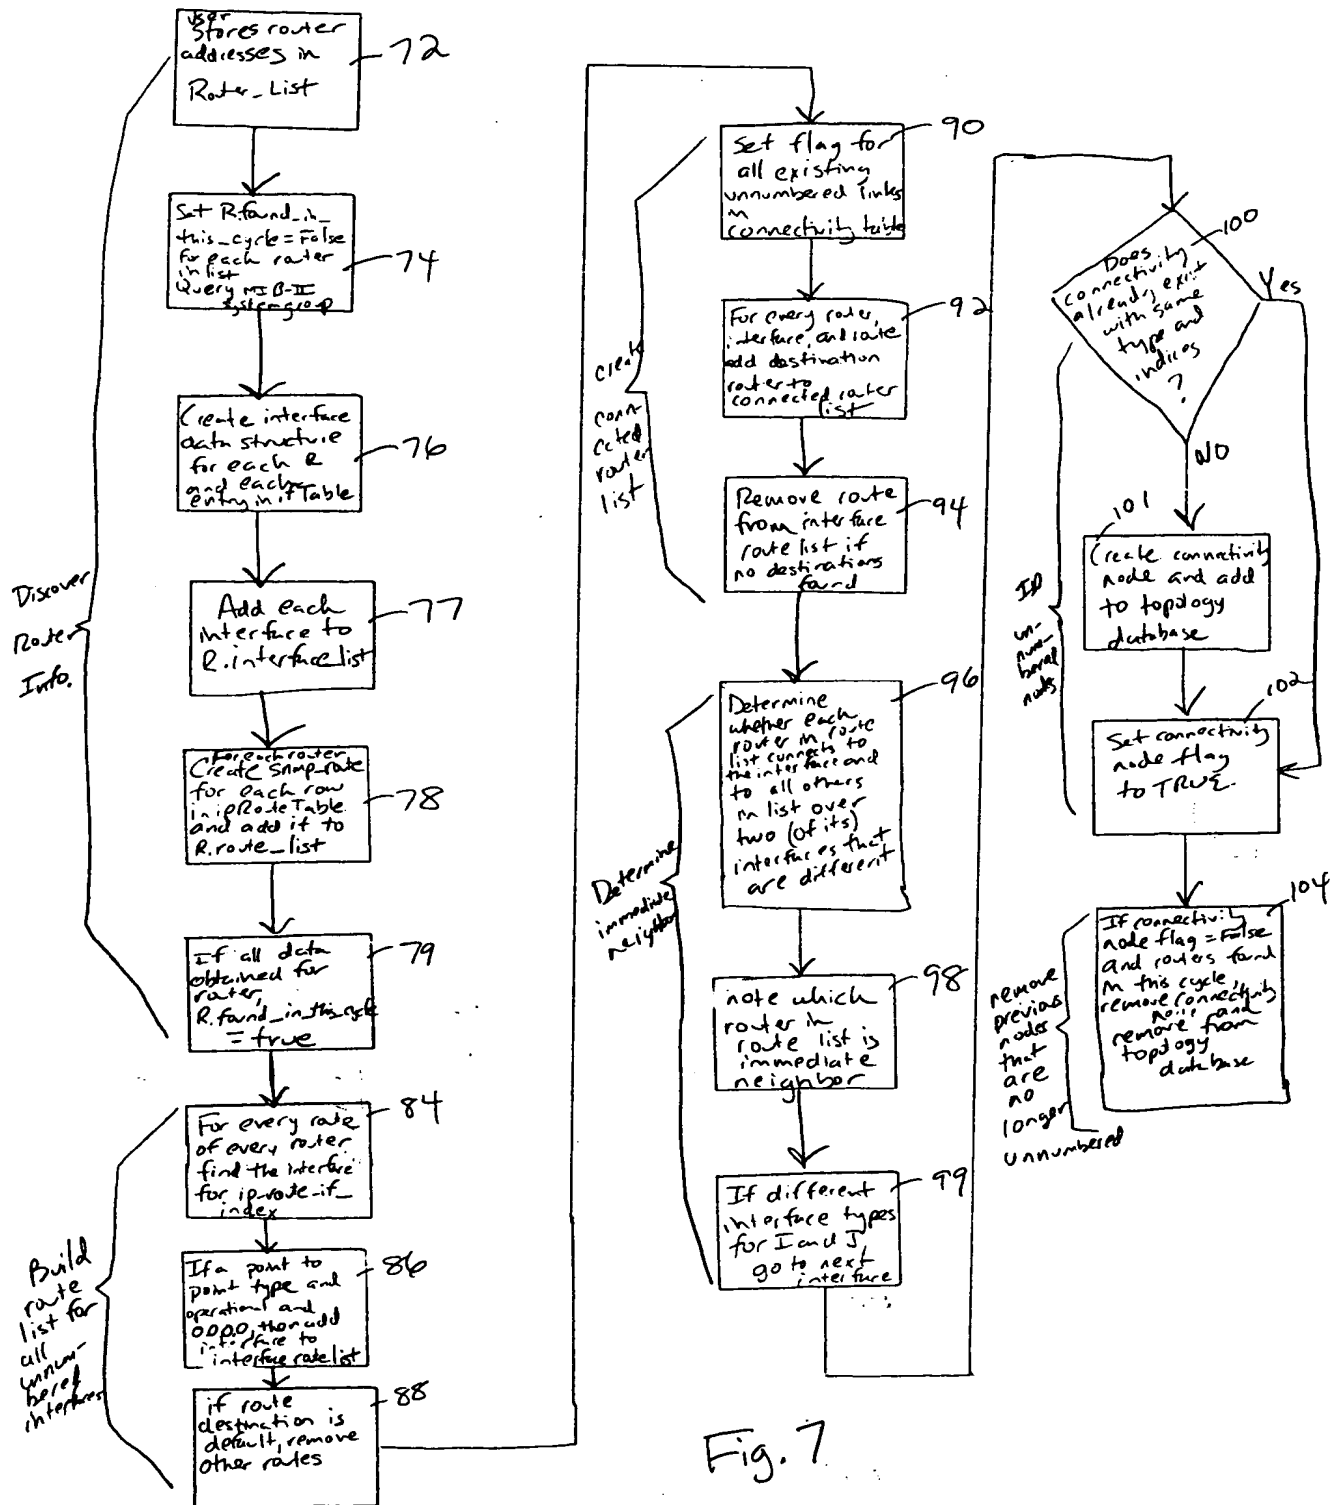 user
stores router
addresses in
Router_List
72
Set R.found_in_
this_cycle = False
for each router
in list
Query MIB-II
system group
74
Create interface
data structure
for each R
and each
entry in if Table
76
Add each
interface to
R.interface list
77
For each router
Create snmp_route
for each row
in ipRouteTable
and add it to
R.route_list
78
If all data
obtained for
router,
R.found_in_this_cycle
= true
79
Discover
Router
Info.
For every route
of every router
find the interface
for ip_route_if_
index
84
If a point to
point type and
operational and
0.0.0.0, then add
interface to
interface route list
86
if route
destination is
default, remove
other routes
88
Build
route
list for
all
unnum-
bered
interfaces
Set flag for
all existing
unnumbered links
in
connectivity table
90
For every router,
interface, and route
add destination
router to
connected router
list
92
Remove route
from interface
route list if
no destinations
found
94
create
conn-
ected
router
list
Determine
whether each
router in route
list connects to
the interface and
to all others
in list over
two (of its)
interfaces that
are different
96
note which
router in
route list is
immediate
neighbor
98
If different
interface types
for I and J,
go to next
interface
99
Determine
immediate
neighbor
Does
connectivity
already exist
with same
type and
indices
?
100
Yes
NO
101
Create connectivity
node and add
to topology
database
102
Set connectivity
node flag
to TRUE.
ID
un-
num-
bered
nodes
104
If connectivity
node flag = False
and routers found
in this cycle,
remove connectivity
node and
remove from
topology
database
remove
previous
nodes
that
are
no
longer
unnumbered
Fig. 7